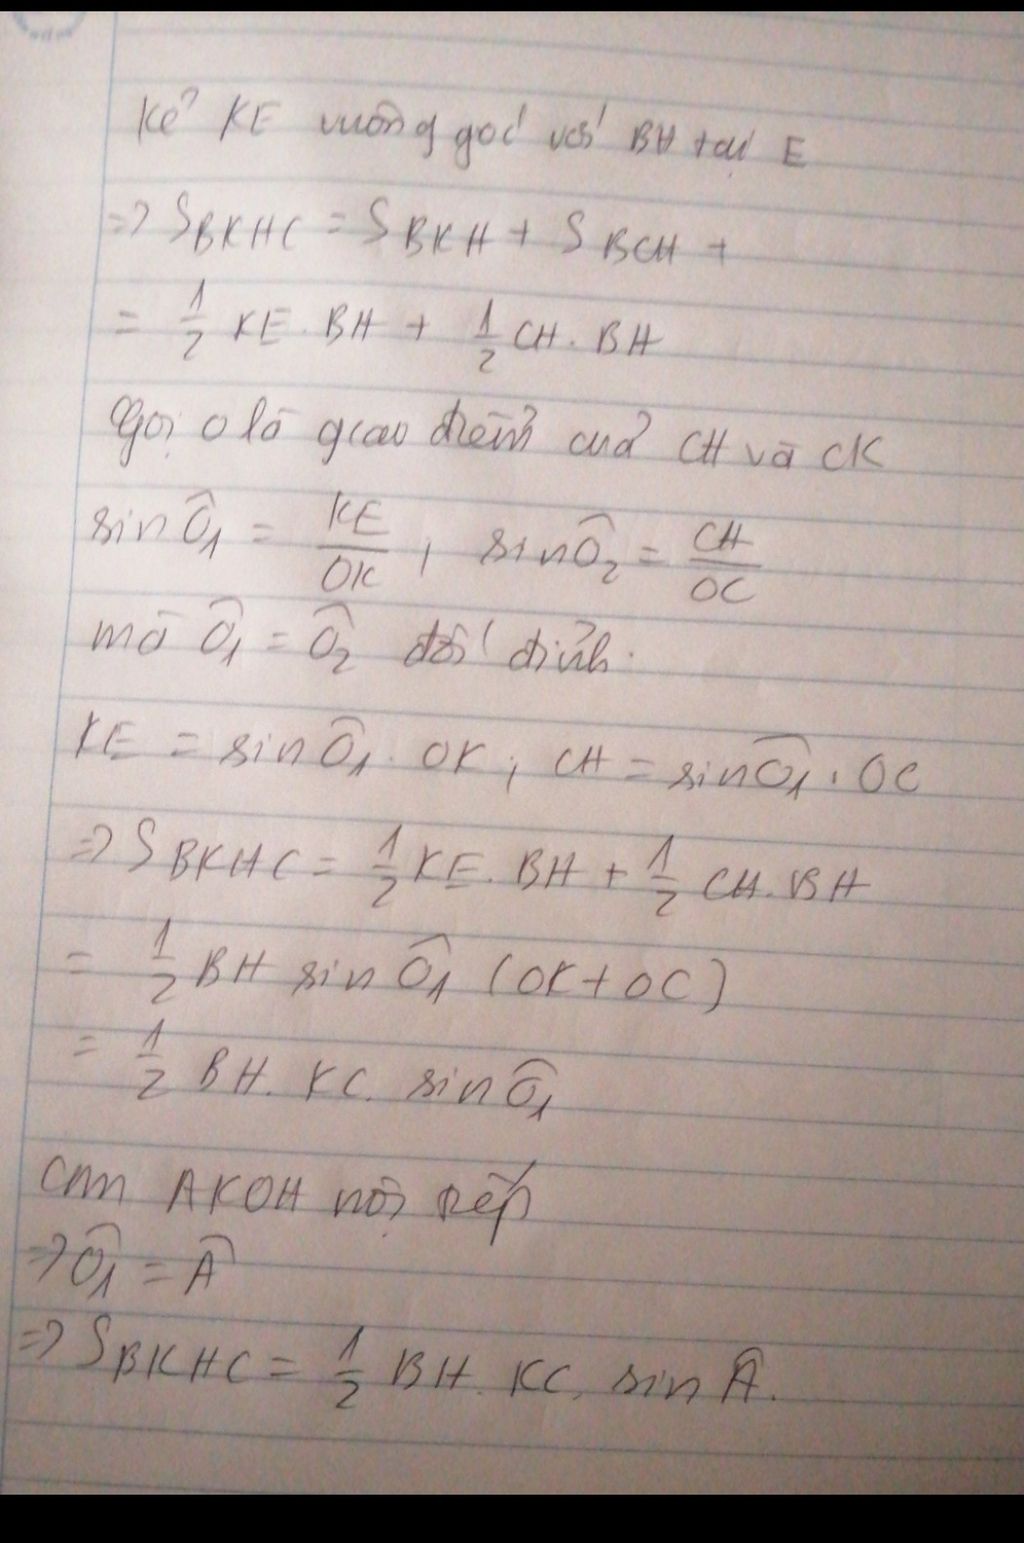 Kẻ KE vuông góc với BH tại E
=> S BKHC = S BKH + S BCH +
= 1/2 KE . BH + 1/2 CH . BH
Gọi O là giao điểm của CH và CK
sin Ô1 = KE/OK ; sin Ô2 = CH/OC
mà Ô1 = Ô2 đối đỉnh.
KE = sin Ô1 . OK ; CH = sin Ô1 . OC
=> S BKHC = 1/2 KE . BH + 1/2 CH . BH
= 1/2 BH sin Ô1 (OK + OC)
= 1/2 BH . KC . sin Ô1
cm AKOH nội tiếp
=> Ô1 = Â
=> S BKHC = 1/2 BH . KC . sin Â.